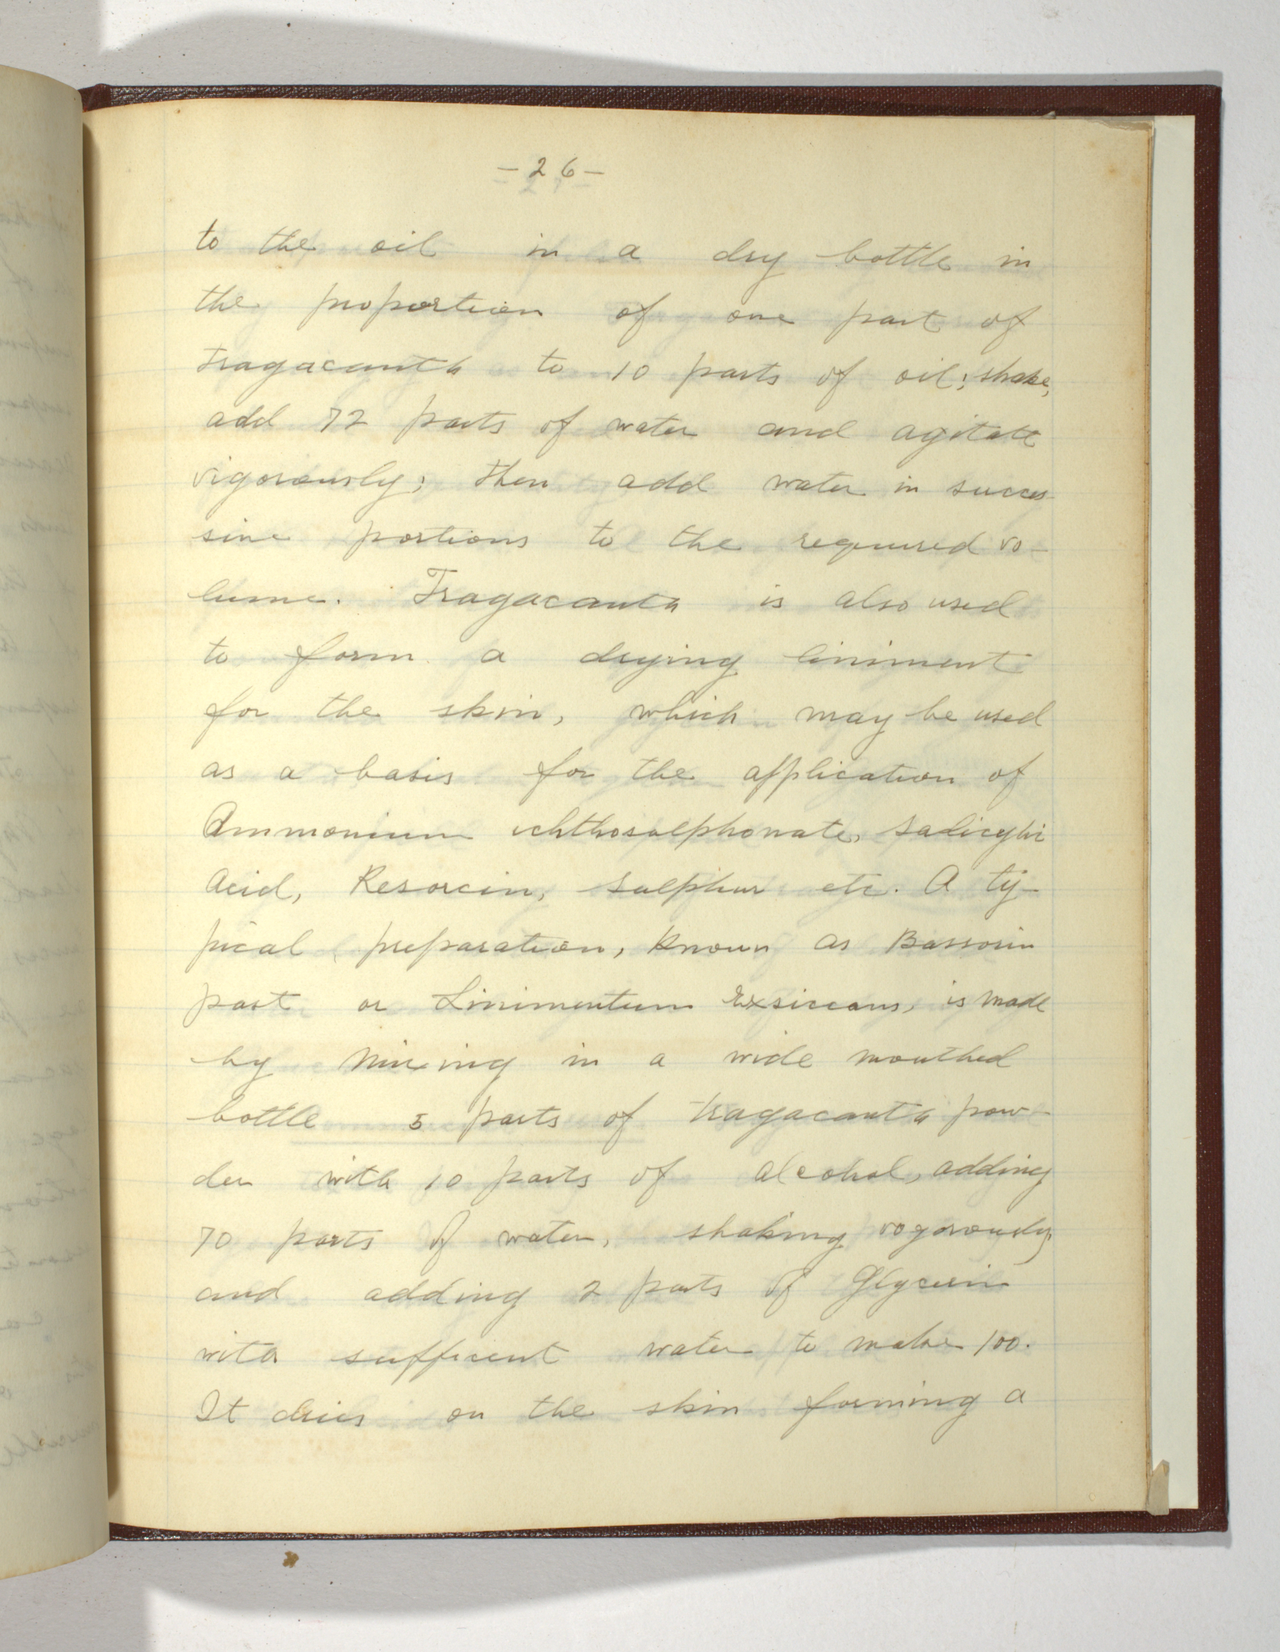 -26-
to the oil in a dry bottle in
the proportion of one part of
Tragacanth to 10 parts of oil; shake,
add 72 parts of water and agitate
vigorously; then add water in succes-
sive portions to the required vo-
lume. Tragacanth is also used
to form a drying liniment
for the skin, which may be used
as a basis for the application of
Ammonium ichthosulphonate, Salicylic
Acid, Resorcin, Sulphur etc. A ty-
pical preparation, known as Bassorin
past or Linimentum Exsiccans, is made
by mixing in a wide mouthed
bottle 5 parts of tragacanth pow-
der with 10 parts of alcohol, adding
70 parts of water, shaking vogorously,
and adding 2 parts of Glycerin
with sufficent water to make 100.
It dries on the skin forming a